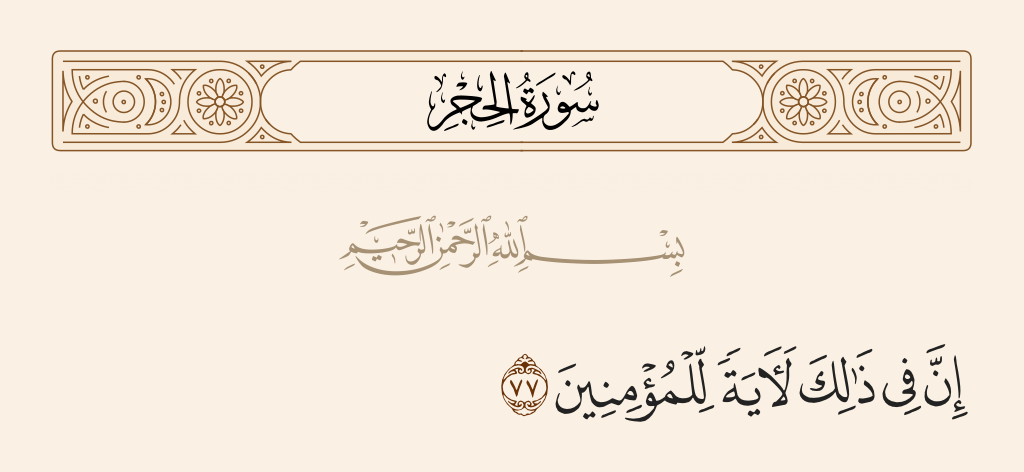 سُورَةُ الحِجْرِ
بِسْمِ ٱللَّهِ ٱلرَّحْمَٰنِ ٱلرَّحِيمِ
إِنَّ فِى ذَٰلِكَ لَـَٔايَةً لِّلْمُؤْمِنِينَ ٧٧